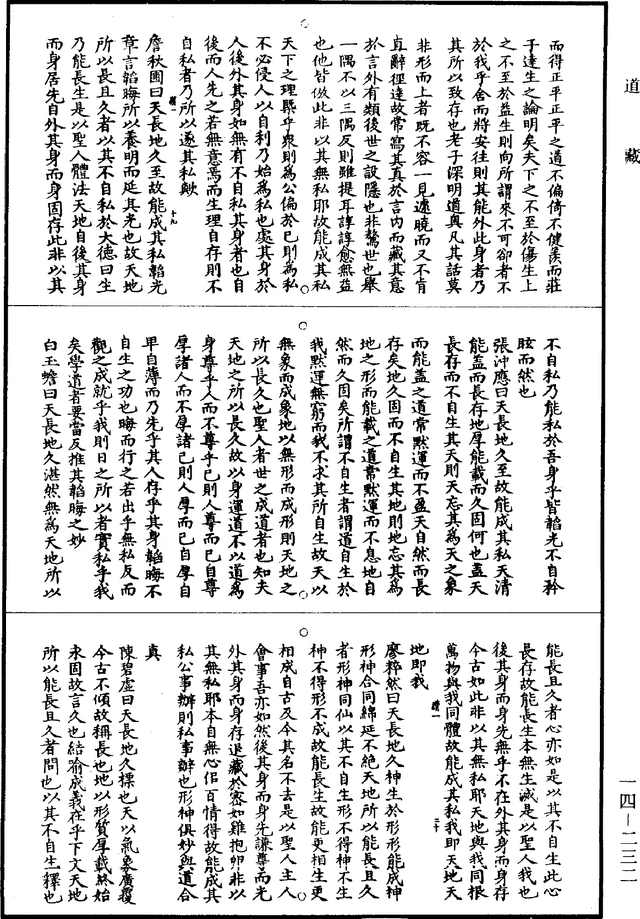 道藏
而得正平正平之道不偏倚不健羨而莊
子達生之論明矣夫天下之不至於傷生上
之不至於益生則向所謂來不可卻者不
於我乎舍而將安往則其能外此身者乃
其所以致存也老子深明道奧凡其話莫
非形而上者既不容一見遽曉而又不肯
直辭徑達故常寫其真於言內而藏其意
於言外有類後世之設隱也非驁世也舉
一隅不以三隅反則雖提耳諄諄愈無益
也他皆倣此非以其無私耶故能成其私
天下之理熙乎衆則為公偏於己則為私
不必侵人以自利乃始為私也處其身於
人後外其身如無有不自私其身者也自
後而人先之若無意焉而生理自存則不
自私者乃所以遂其私歟
詹秋圃曰天長地久至故能成其私韜光
章言韜晦所以養明而延其光也故天地
所以長且久者以其不自私於大德曰生
乃能長生是以聖人體法天地自後其身
而身居先自外其身而身固存此非以其
不自私乃能私於吾身乎皆韜光不自矜
眩而然也
張沖應曰天長地久至故能成其私天清
能蓋而長存地厚能載而久固何也蓋天
長存而不自生其天則天忘其為天之象
而能蓋之道常默運而不盈天自然而長
存矣地久固而不自生其地則地忘其為
地之形而能載之道常默運而不息地自
然而久固矣所謂不自生者謂道自生於
我默運無窮而我不求其所自生故天以
無象而成象地以無形而成形則天地之
所以長久也聖人者世之成道者也知夫
天地之所以長久故以身運道不以道為
身尊乎人而不尊乎己則人尊而己自尊
厚諸人而不厚諸己則人厚而己自厚自
卑自薄而乃先乎其人存乎其身韜晦不
自生之功也晦而行之若出乎無私反而
觀之成就乎我則日之所以者實私乎我
矣學道者要當反推其韜晦之妙
白玉蟾曰天長地久湛然無為天地所以
能長且久者心亦如是以其不自生此心
長存故能長生本無生滅是以聖人我也
後其身而身先無乎不在外其身而身存
今古如此非以其無私耶天地與我同根
萬物與我同體故能成其私我即天地天
地即我
廖粹然曰天長地久神生於形形能成神
形神合同綿延不絕天地所以能長且久
者形神同仙以其不自生形不得神不生
神不得形不成故能長生故能更相生更
相成自古及今其名不去是以聖人主人
會事吾亦如然後其身而身先謙尊而光
外其身而身存退藏於密如雞抱卵非以
其無私耶本自無心佀百情得故能成其
私公事辦則私事辦也形神俱妙與道合
真
陳碧虛曰天長地久標也天以氣象廣覆
今古不傾故稱長也地以形質厚載終始
永固故言久也結喻成義在乎下文天地
所以能長且久者問也以其不自生釋也
一四－二三二